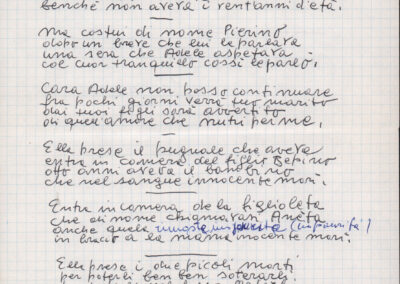 benche non aveva i vent'anni d'età.
Ma costui di nome Pierino
dopo un breve che lui le parlava
una sera che Adele aspetava
col cuor tranquilo cossì le parlò.
Cara Adele non posso continuare
fra pochi giorni verrà tuo marito
dai tuoi figli sarà avvertito
di quel amore che nutri per me.
Ella prese il pugnale che aveva
entra in camera del figlio Bepino
otto anni aveva il bambino
che nel sangue innocente morì.
Entra in camera de la figlioleta
che di nome chiamavasi Aneta
anche quela (impaurita)
in bracio a la mama inocente morì.
Ella prese i due picoli morti
per poterli ben ben soterarli